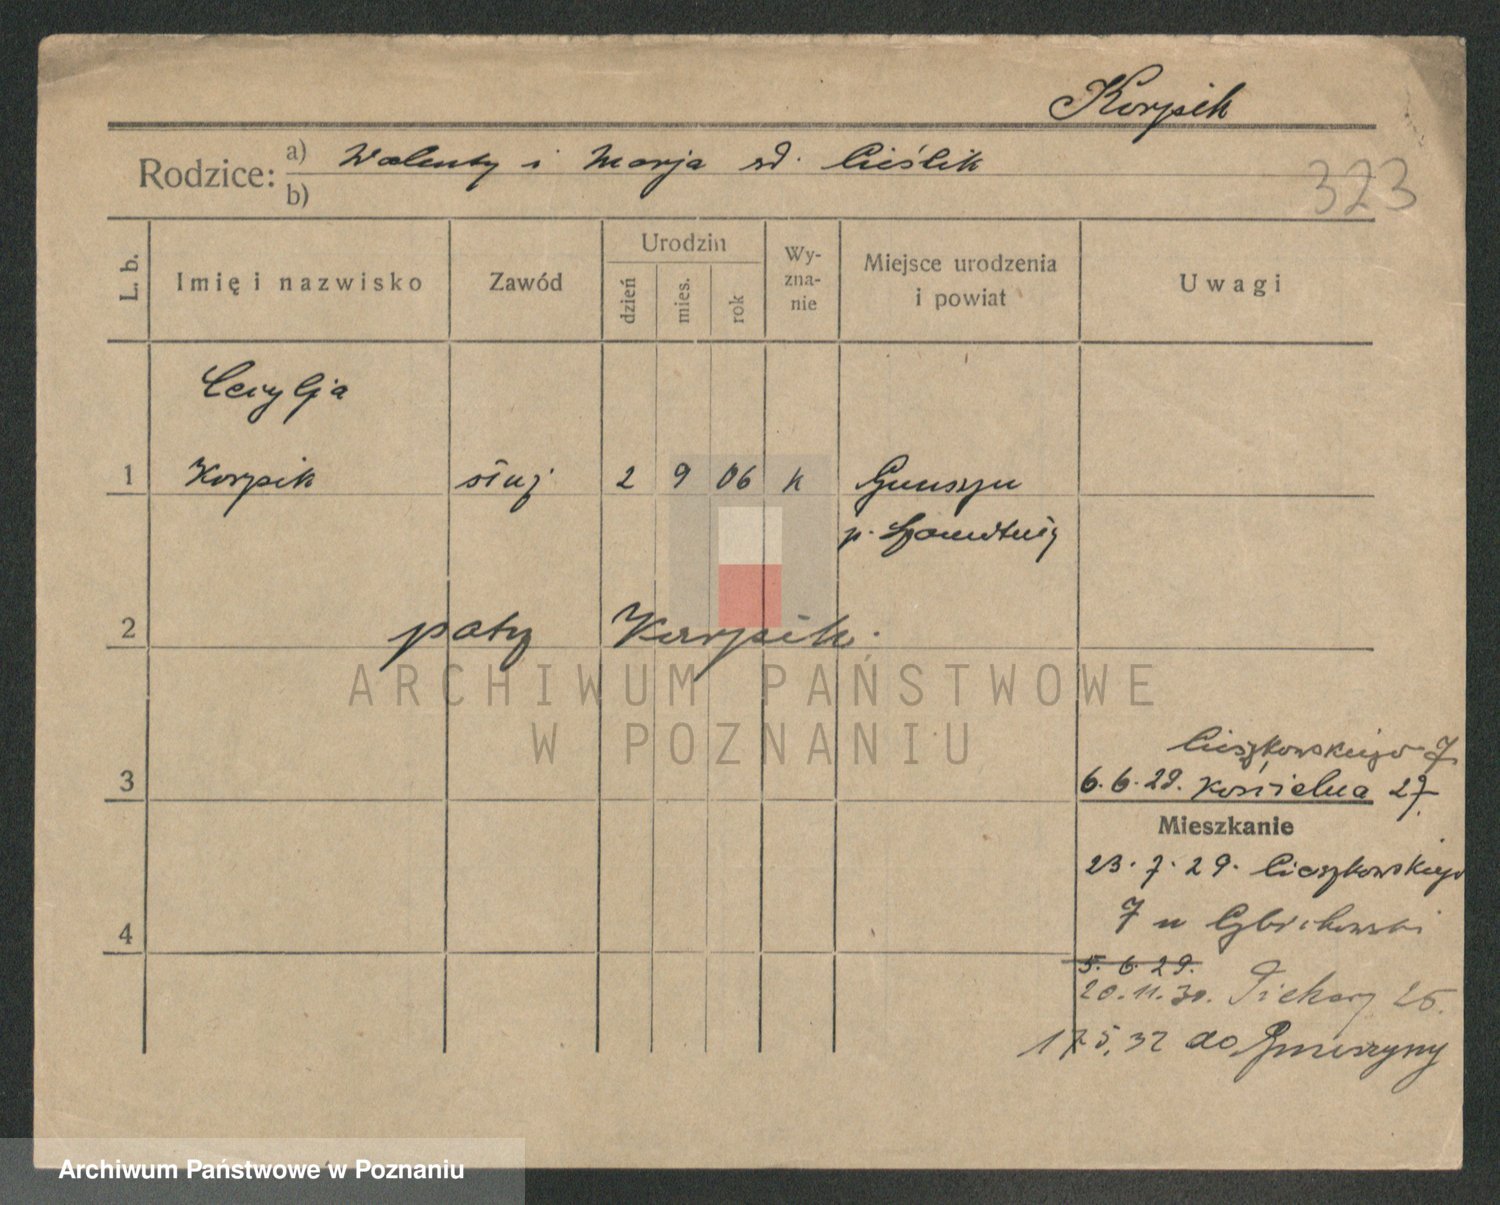 Korpik
Rodzice: a) Walenty i Marja zd. Cieślik
b)
323
L. b.
Imię i nazwisko
Zawód
Urodzin
dzień
mies.
rok
Wy-
zna-
nie
Miejsce urodzenia
i powiat
Uwagi
Cecylja
1 Korpik służ 2 9 06 k
p. Szamotuły
2 patrz Karpik.
ARCHIWUM PAŃSTWOWE
W POZNANIU
Cieszkowskiego 7
3 6.6.29. Kościelna 27
Mieszkanie
23.7.29. Cieszkowskiego
7 u
4
5.6.29.
20.11.30. Piekary 26.
17 5.32 do
Archiwum Państwowe w Poznaniu